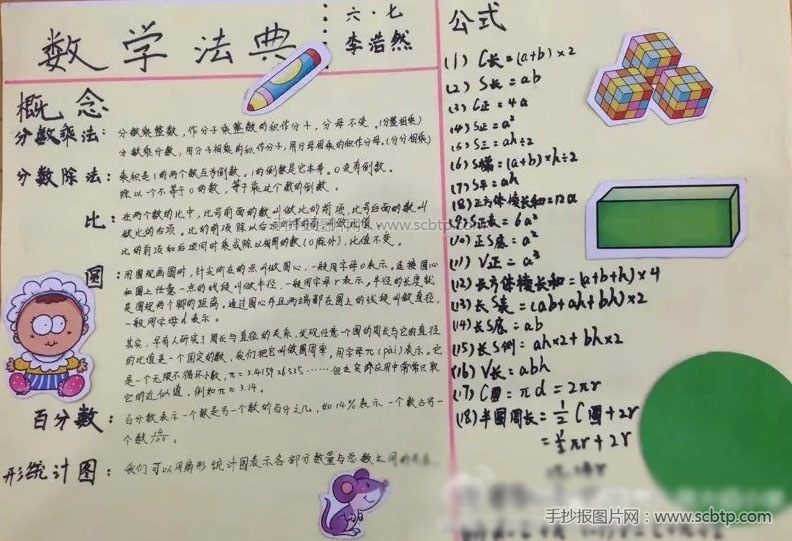 数学法典
六·七
李浩然
概念
分数乘法：分数乘整数，作分子乘整数的积作分子，分母不变。(分整相乘)
分数乘分数，用分子相乘的积作分子，用分母相乘的积作分母。(分分相乘)
分数除法：乘积是1的两个数互为倒数。1的倒数是它本身。0没有倒数。
除以一个不等于0的数，等于乘这个数的倒数。
比：在两个数的比中，比号前面的数叫做比的前项，比号后面的数叫
做比的后项。比的前项除以后项
比的前项和后项同时乘或除以相同的数(0除外)，比值不变。
圆：用圆规画圆时，针尖所在的点叫做圆心，一般用字母O表示。连接圆心
和圆上任意一点的线段叫做半径，一般用字母r表示，半径的长度就
是圆规两个脚的距离。通过圆心并且两端都在圆上的线段叫做直径，
一般用字母d表示。
其实，早有人研究了周长与直径的关系，发现任意一个圆的周长与它的直径
的比值是一个固定的数，我们把它叫做圆周率，用字母π(pài)表示。它
是一个无限不循环小数，π=3.1415926535……但在实际应用中常常只取
它的近似值，例如π≈3.14。
百分数：百分数表示一个数是另一个数的百分之几，如14%表示一个数占另一
个数
形统计图：我们可以用扇形统计图表示各部分数量与总数之间的关系
公式
(1) C长=(a+b)×2
(2) S长=ab
(3) C正=4a
(4) S正=a²
(5) S三=ah÷2
(6) S梯=(a+b)×h÷2
(7) S平=ah
(8) 正方体棱长和=12a
(9) S正表=6a²
(10) 正S底=a²
(11) V正=a³
(12) 长方体棱长和=(a+b+h)×4
(13) 长S表=(ab+ah+bh)×2
(14) 长S底=ab
(15) 长S侧=ah×2+bh×2
(16) V长=abh
(17) C圆=πd=2πr
(18) 半圆周长=½C圆+2r
πr+2r
手抄报图片网：www.scbtp.com